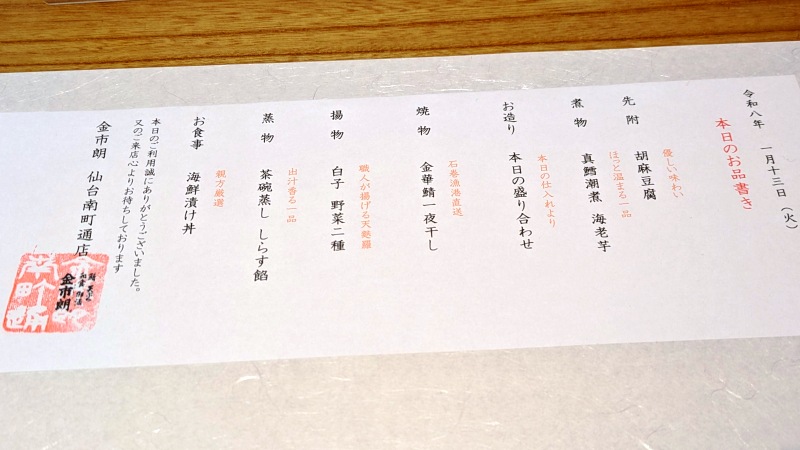 令和八年 一月十三日(火)
本日のお品書き
優しい味わい
先附 胡麻豆腐
ほっと温まる一品
煮物 真鱈潮煮 海老芋
本日の仕入れより
お造り 本日の盛り合わせ
石巻漁港直送
焼物 金華鯖一夜干し
職人が揚げる天麩羅
揚物 白子 野菜二種
出汁香る一品
蒸物 茶碗蒸し しらす餡
親方厳選
お食事 海鮮漬け丼
本日のご利用誠にありがとうございました。
又のご来店心よりお待ちしております
金市朗 仙台南町通店
金市朗